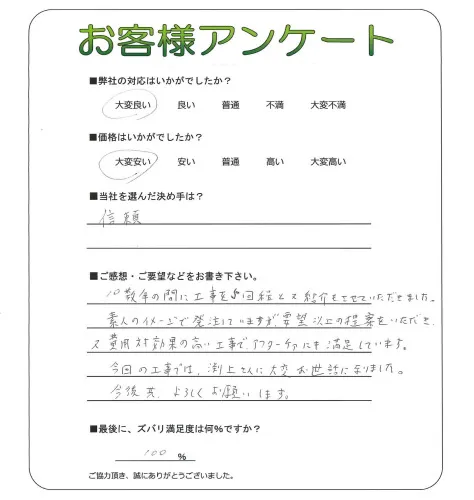 お客様アンケート
■弊社の対応はいかがでしたか？
大変良い 良い 普通 不満 大変不満
■価格はいかがでしたか？
大変安い 安い 普通 高い 大変高い
■当社を選んだ決め手は？
信頼
■ご感想・ご要望などをお書き下さい。
10数年の間に工事を5回組と又紹介もさせていただきました。
素人のイメージで発注していますが、要望以上の提案をいただき、
又費用対効果の高い工事で、アフターケアにも満足しています。
今回の工事では、渕上さんに大変お世話になりました。
今後共、よろしくお願いします。
■最後に、ズバリ満足度は何%ですか？
100 %
ご協力頂き、誠にありがとうございました。